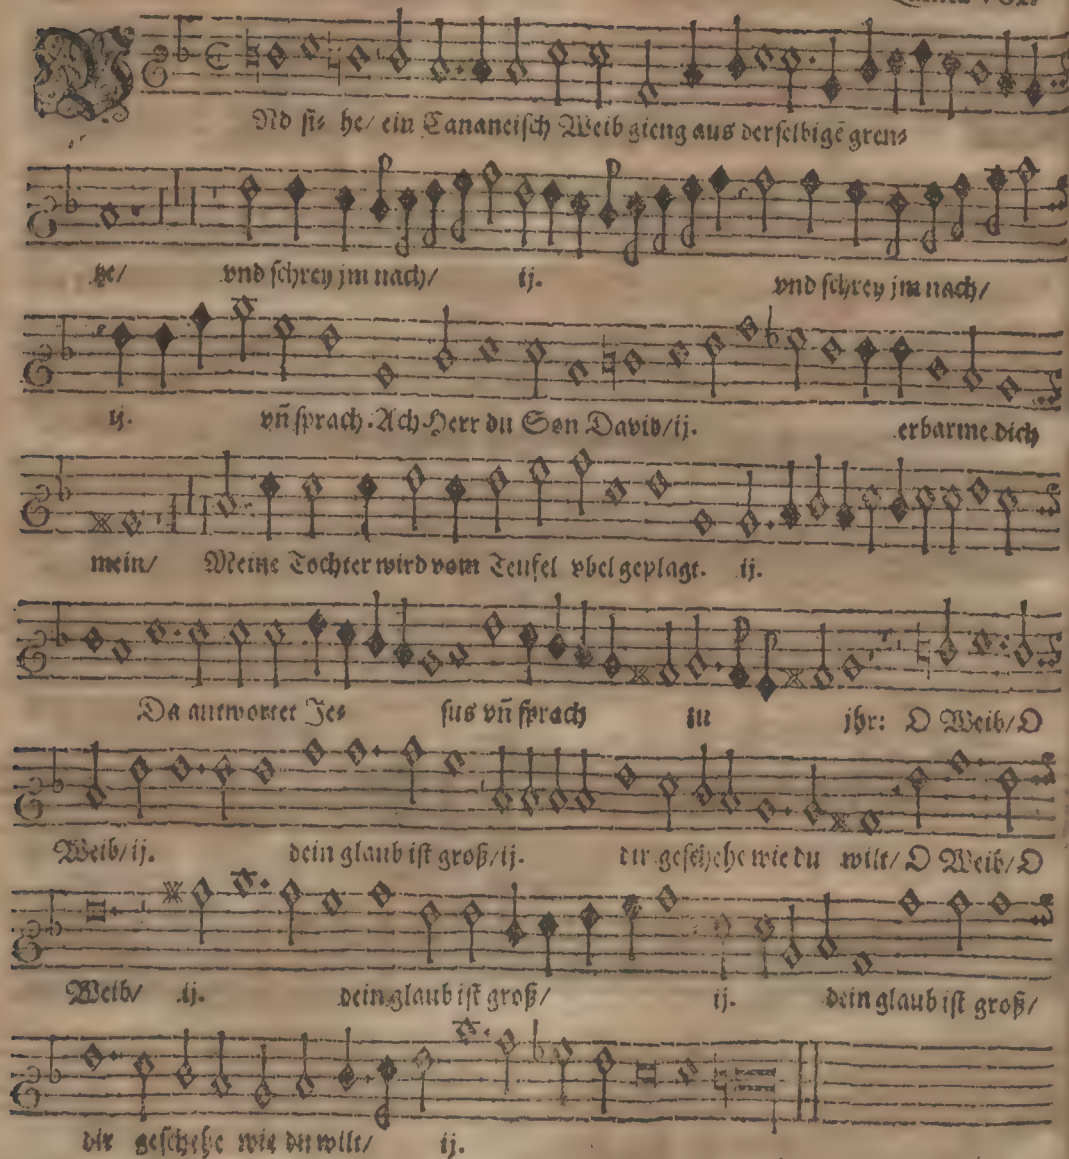 Quinta vox.
VNd si- he/ ein Cananeisch Weib gieng aus derselbigẽ gren-
tze/ vnd schrey jm nach/ ij. vnd schrey jm nach/
ij. vñ sprach. Ach Herr du Son David/ ij. erbarme dich
mein/ Meine Tochter wird vom Teufel vbel geplagt. ij.
Da antwortet Je- sus vñ sprach zu jhr: O Weib/ O
Weib/ ij. dein glaub ist groß/ ij. dir geschehe wie du wilt/ O Weib/ O
Weib/ ij. dein glaub ist groß/ ij. dein glaub ist groß/
dir geschehe wie du wilt/ ij.